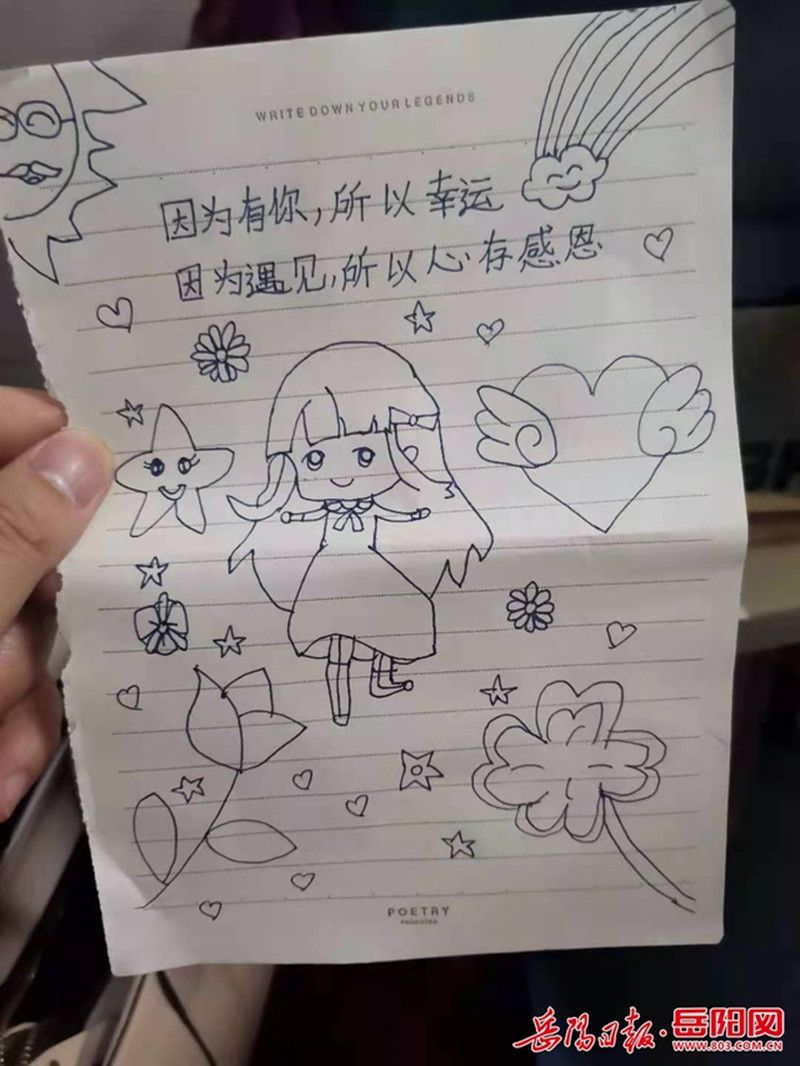 WRITE DOWN YOUR LEGENDS
因为有你,所以幸运
因为遇见,所以心存感恩
POETRY
岳阳日报·岳阳网
WWW.803.COM.CN